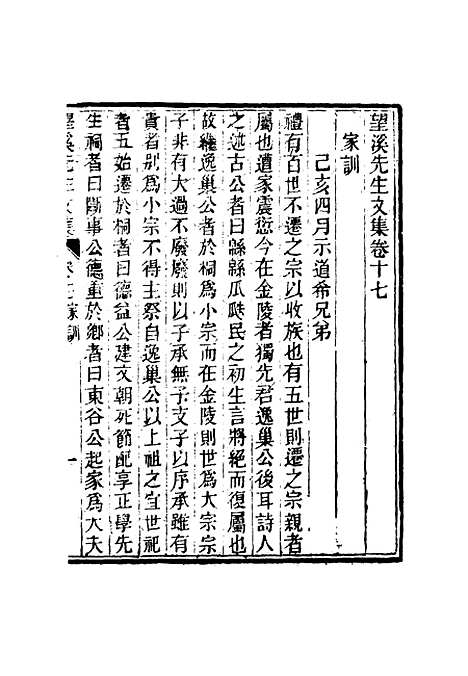 望溪先生文集卷十七
家訓
己亥四月示道希兄弟
禮有百世不遷之宗以收族也有五世則遷之宗親者
屬也遭家震愆今在金陵者獨先君逸巢公後耳詩人
之述古公者曰緜緜瓜瓞民之初生言將絕而復屬也
故繼逸巢公者於桐爲小宗而在金陵則世爲大宗宗
子非有大過不廢廢則以子承無子支子以序承雖有
貴者别爲小宗不得主祭自逸巢公以上祖之宜世祀
者五始遷於桐者曰德益公建文朝死節配享正學先
生祠者曰斷事公德重於鄉者曰東谷公起家爲大夫
望溪先生文集 卷十七家訓 一